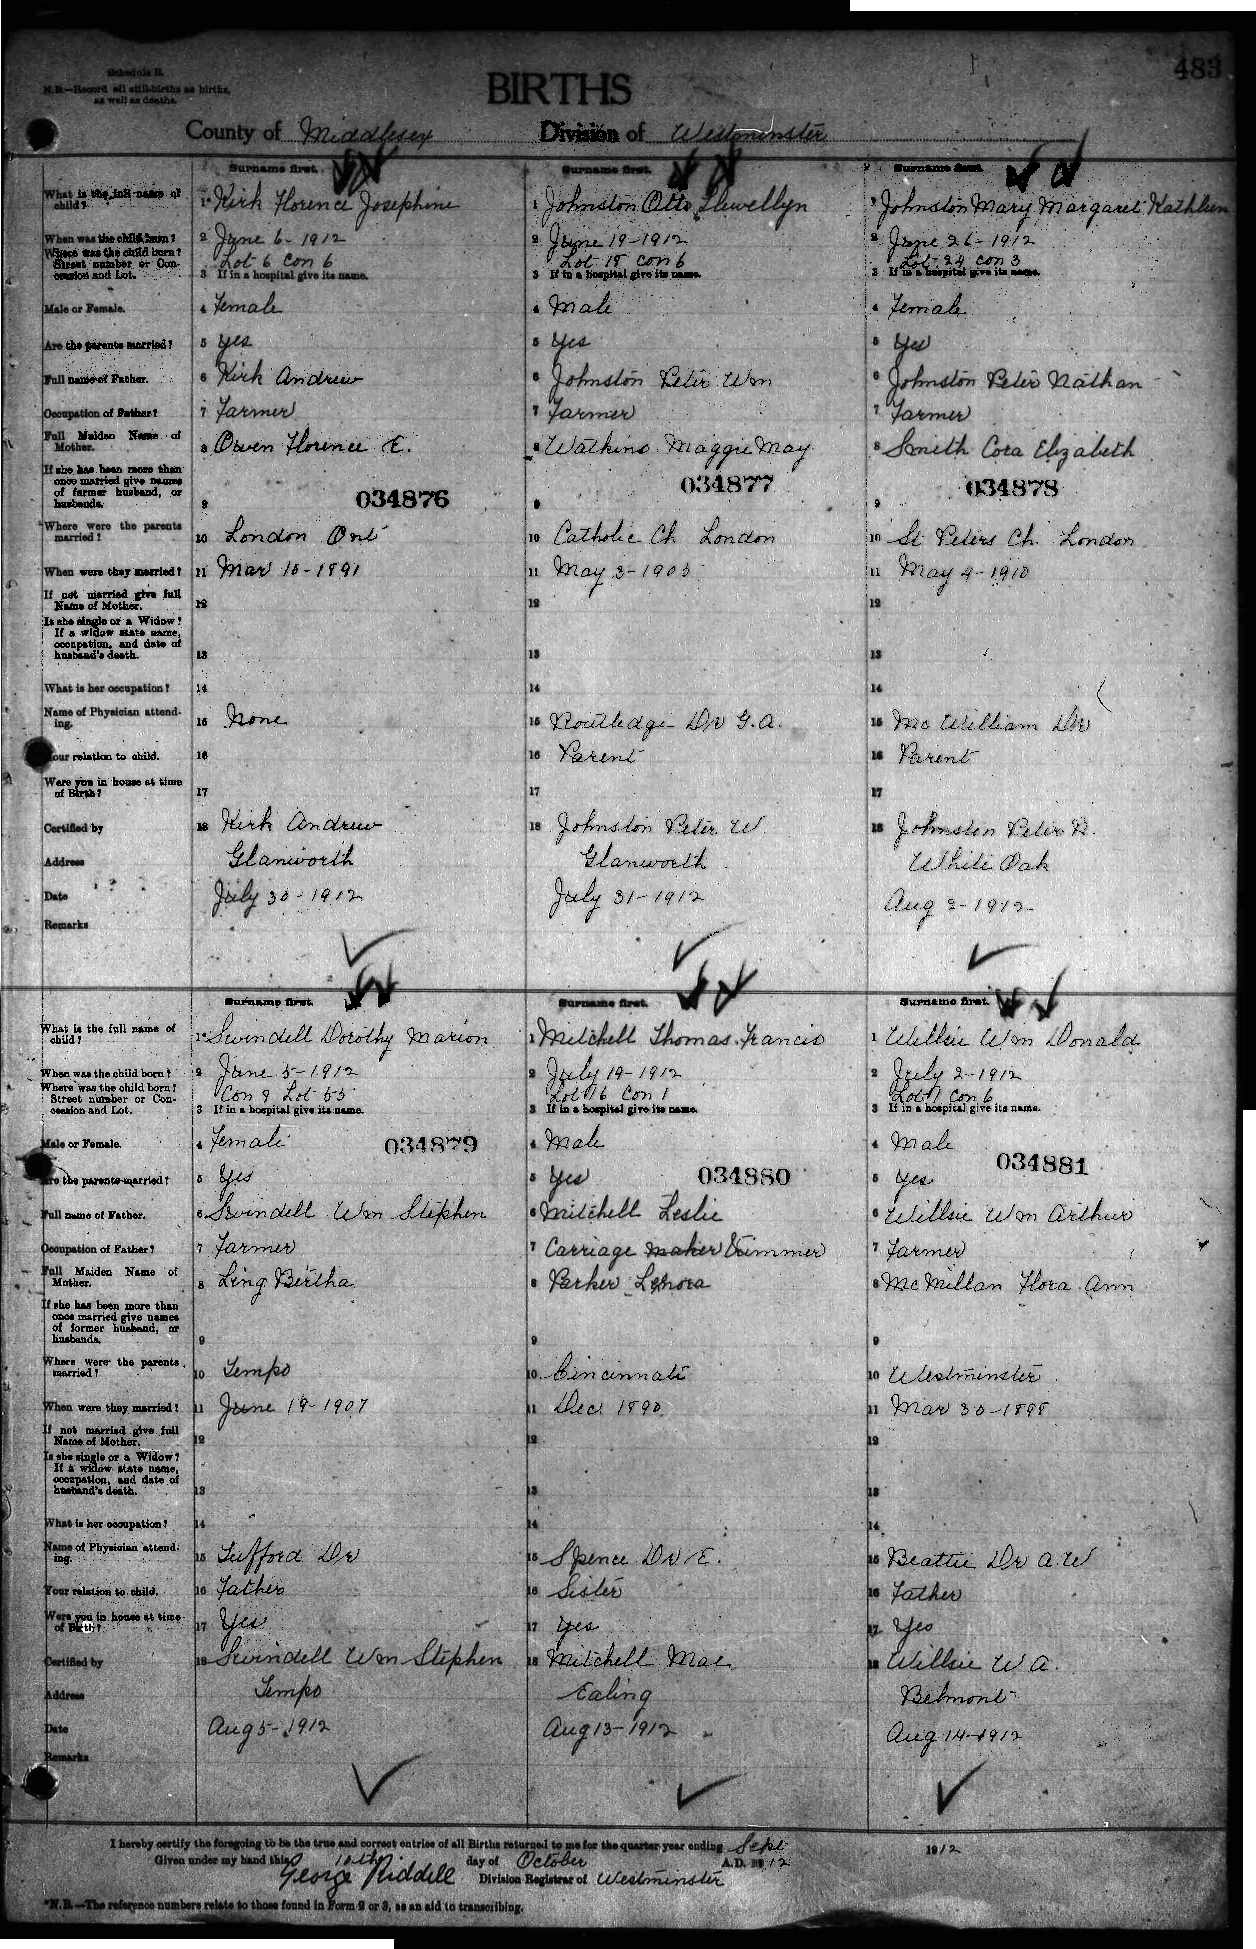 483
Schedule B.
N.B.—Record all still-births as births,
as well as deaths.
BIRTHS
County of Middlesex Division of Westminster
Surname first. Surname first. Surname first.
What is the full name of child? 1* Kirk Florence Josephine 1 Johnston Otto Llewellyn 1 Johnston Mary Margaret Kathleen
When was the child born? 2 June 6-1912 2 June 19-1912 2 June 26-1912
Where was the child born? Street number or Concession and Lot. Lot 6 Con 6 Lot 18 con 6 Lot 24 con 3
3 If in a hospital give its name. 3 If in a hospital give its name. 3 If in a hospital give its name.
Male or Female. 4 Female 4 Male 4 Female
Are the parents married? 5 Yes 5 Yes 5 Yes
Full name of Father. 6 Kirk Andrew 6 Johnston Peter Wm 6 Johnston Peter Nathan
Occupation of Father? 7 Farmer 7 Farmer 7 Farmer
Full Maiden Name of Mother. 8 Owen Florence E. 8 Watkins Maggie May 8 Smith Cora Elizabeth
034876 034877 034878
If she has been more than once married give names of former husband, or husbands. 9 9 9
Where were the parents married? 10 London Ont 10 Catholic Ch London 10 St Peters Ch London
When were they married? 11 Mar 10-1891 11 May 3-1905 11 May 4-1910
If not married give full Name of Mother. 12 12 12
Is she single or a Widow? If a widow state name, occupation, and date of husband's death. 13 13 13
What is her occupation? 14 14 14
Name of Physician attending. 15 None 15 Routledge Dr G.A. 15 McWilliam Dr
Your relation to child. 16 16 Parent 16 Parent
Were you in house at time of Birth? 17 17 17
Certified by 18 Kirk Andrew 18 Johnston Peter W. 18 Johnston Peter N.
Address Glanworth Glanworth White Oak
Date July 30-1912 July 31-1912 Aug 2-1912
Remarks
Surname first. Surname first. Surname first.
What is the full name of child? 1* Swindell Dorothy Marion 1 Mitchell Thomas Francis 1 Willsie Wm Donald
When was the child born? 2 June 5-1912 2 July 19-1912 2 July 2-1912
Where was the child born? Street number or Concession and Lot. Con 9 Lot 55 Lot 16 Con 1 Lot 1 con 6
3 If in a hospital give its name. 3 If in a hospital give its name. 3 If in a hospital give its name.
Male or Female. 4 Female 4 Male 4 Male
034879 034880 034881
Are the parents married? 5 Yes 5 Yes 5 Yes
Full name of Father. 6 Swindell Wm Stephen 6 Mitchell Leslie 6 Willsie Wm Arthur
Occupation of Father? 7 Farmer 7 Carriage maker trimmer 7 Farmer
Full Maiden Name of Mother. 8 Ling Bertha 8 Parker Lenora 8 McMillan Flora Ann
If she has been more than once married give names of former husband, or husbands. 9 9 9
Where were the parents married? 10 Tempo 10 Cincinnati 10 Westminster
When were they married? 11 June 19-1907 11 Dec 1890 11 Mar 30-1898
If not married give full Name of Mother. 12 12 12
Is she single or a Widow? If a widow state name, occupation, and date of husband's death. 13 13 13
What is her occupation? 14 14 14
Name of Physician attending. 15 Tufford Dr 15 Spence Dr E. 15 Beattie Dr A.W
Your relation to child. 16 Father 16 Sister 16 Father
Were you in house at time of Birth? 17 Yes 17 Yes 17 Yes
Certified by 18 Swindell Wm Stephen 18 Mitchell Mae 18 Willsie W A.
Address Tempo Ealing Belmont
Date Aug 5-1912 Aug 13-1912 Aug 14-1912
Remarks
I hereby certify the foregoing to be the true and correct entries of all Births returned to me for the quarter year ending Sept 1912
Given under my hand this 10th day of October A.D. 1912
George Riddell Division Registrar of Westminster
*N.B.—The reference numbers relate to those found in Form 2 or 3, as an aid to transcribing.